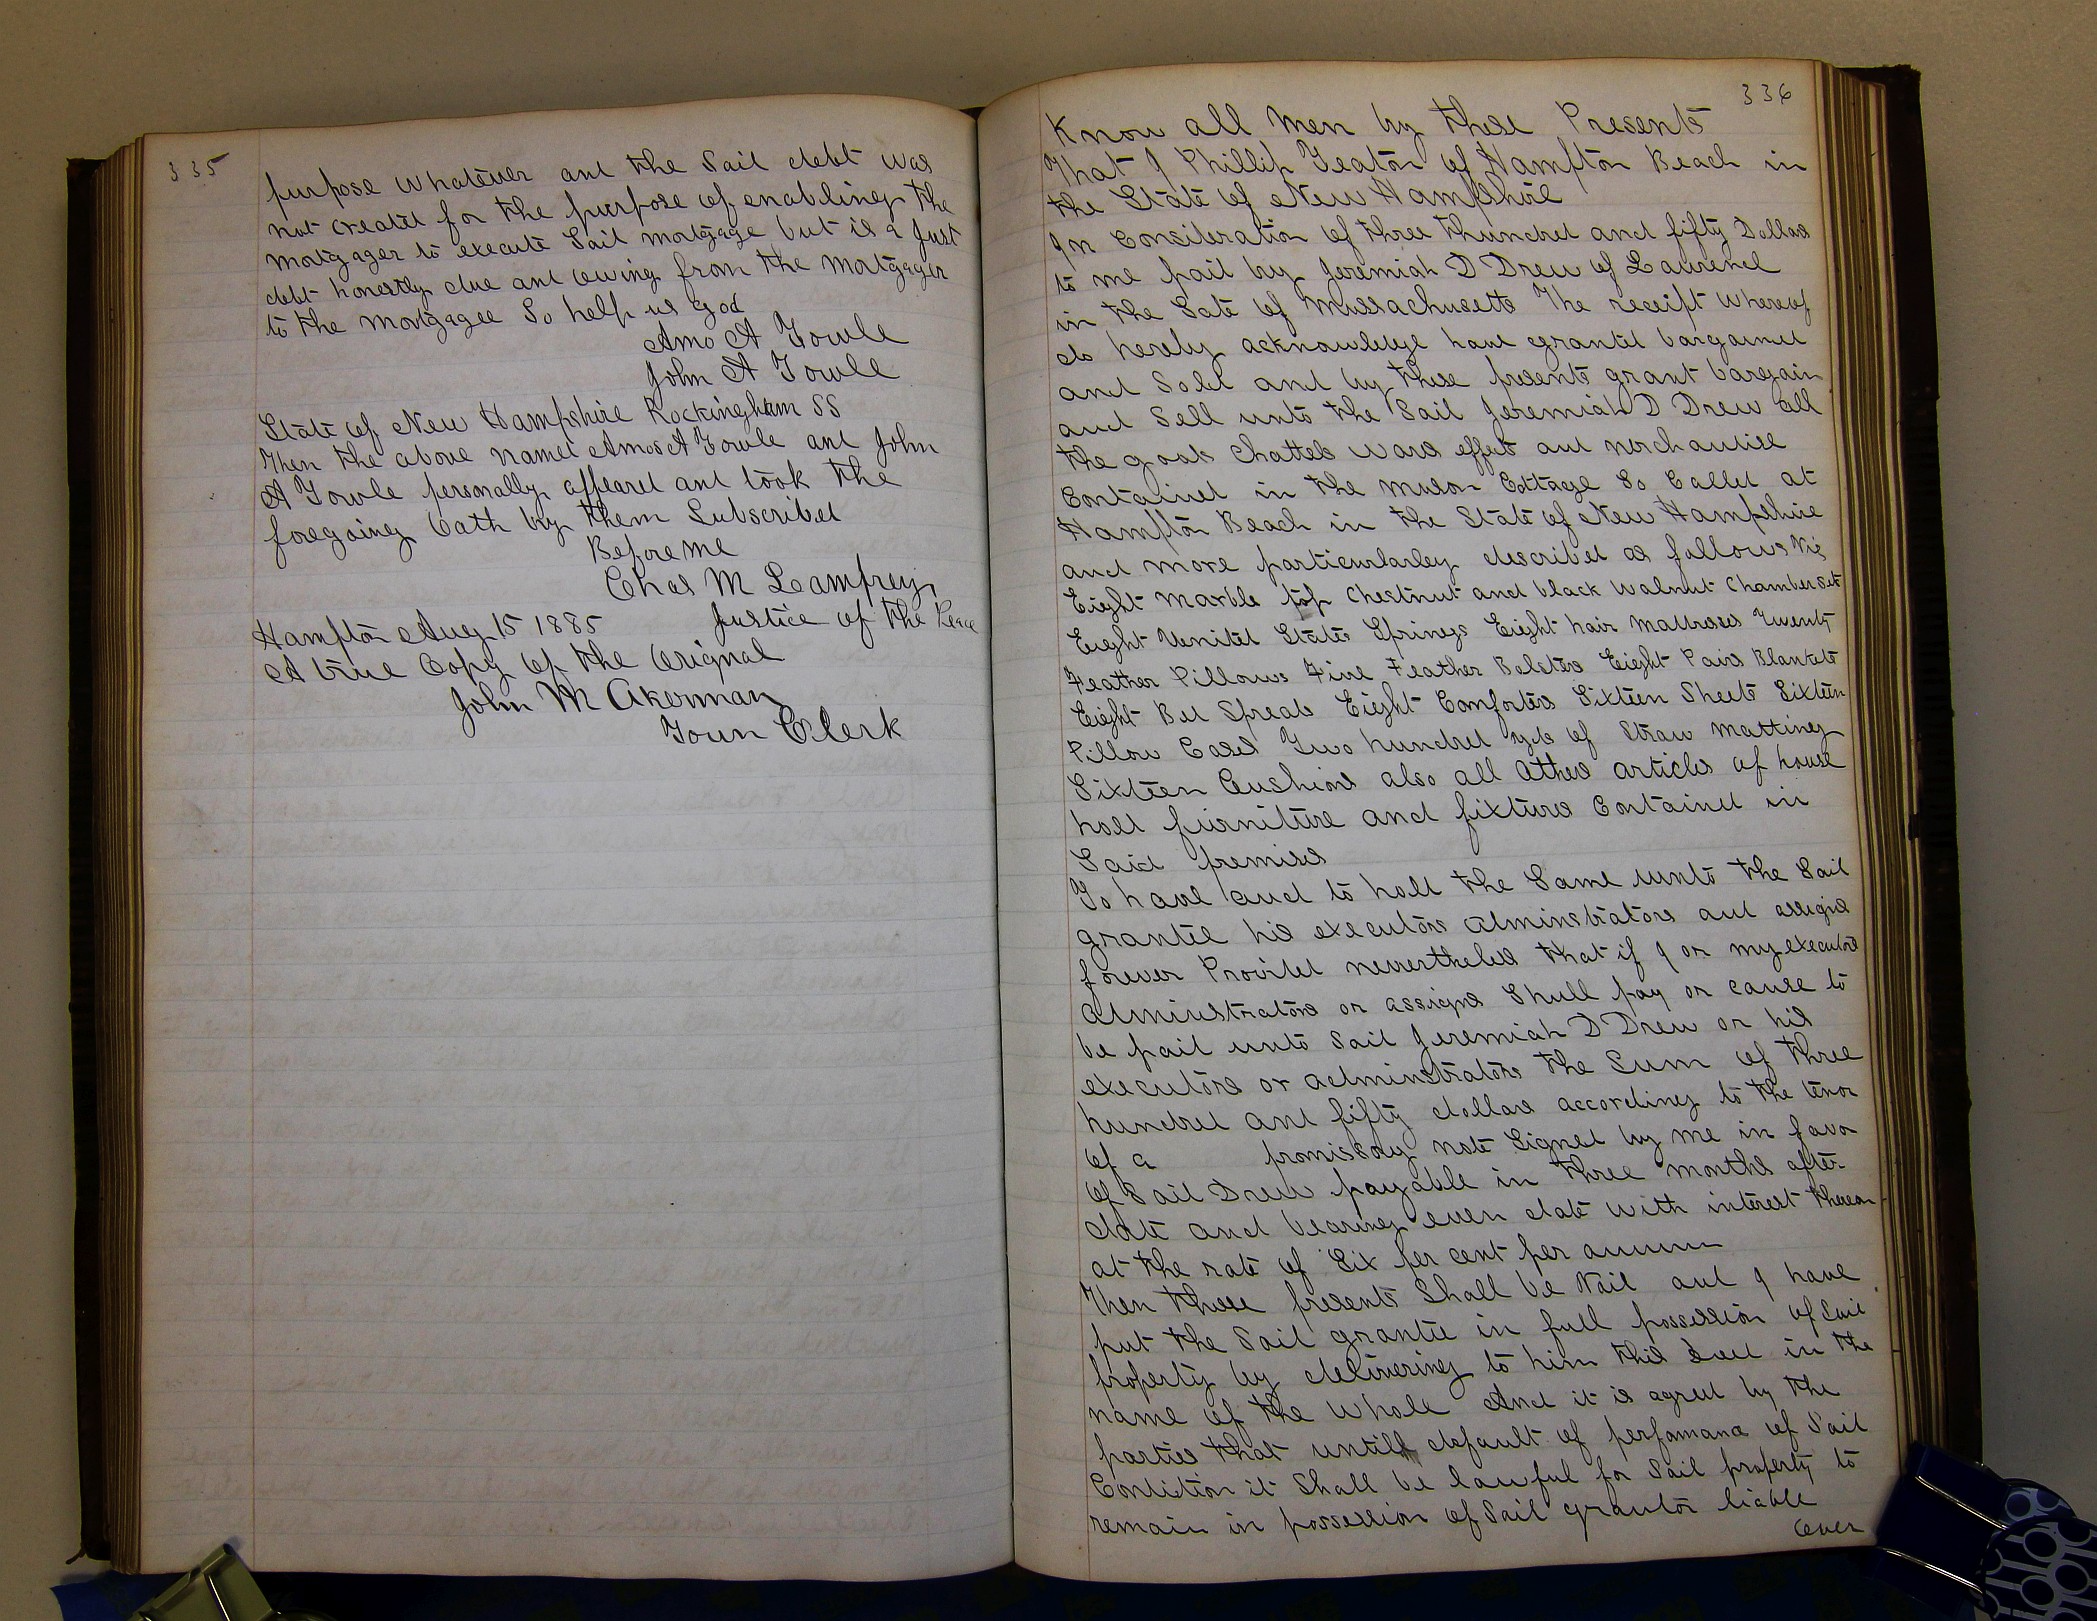 335
purpose whatever and the Said debt was
not created for the purpose of enabling the
mortgager to execute Said mortgage but is a Just
debt honestly due and owing from the Mortgager
to the Mortgagee So help us God
Amos A Towle
John A Towle
State of New Hampshire Rockingham SS
Then the above named Amos A Towle and John
A Towle personally appeared and took the
foregoing Oath by them Subscribed
Before me
Chas M Lamprey
Hampton Aug 15 1885 Justice of the Peace
A true Copy of the Orignal
John M Akerman
Town Clerk
336
Know all Men by these Presents
That I Phillip Yeaton of Hampton Beach in
the State of New Hampshire
In Consideration of three Thundred and fifty Dollars
to me paid by Jeremiah D Drew of Lawrence
in the Sate of Massachusetts The receipt whereof
do hereby acknowledge have granted bargained
and Sold and by these presents grant bargain
and Sell unto the Said Jeremiah D Drew all
the goods Chattels wares effects and
Contained in the Cottage So Called at
Hampton Beach in the State of New Hampshire
and more particurlarley described as follows Viz
Eieght Marble top Chestnut and black walnut Chamber Sets
Eieght United States Springs Eieght hair Mattresses Twenty
Feather Pillows Five Feather Bolsters Eieght Pairs Blankets
Eieght Bed Spreads Eieght Comforters Sixteen Sheets Sixteen
Pillow Cases Two hundred yds of Straw matting
Sixteen Cushions also all Other articles of house
hold furniture and fixtures Contained in
Said premises
To have and to hold the Same unto the Said
grantee his executors adminstrators and assigns
forever Provided nevertheless that if I or my executors
adminstrators or assigns Shall pay or cause to
be paid unto Said Jeremiah D Drew or his
executors or adminstrators the Sum of three
hundred and fifty dollars according to the tenor
of a promissory note Signed by me in favor
of Said Drew payable in three months after
date and bearing even date with interest thereon
at the rate of Six per cent per annum
Then these presents Shall be Void and I have
put the Said grantee in full possession of Said
property by delivering to him this deed in the
name of the whole And it is agreed by the
parties that untill default of perfomance of Said
Condition it Shall be lawful for Said property to
remain in possession of Said grantor liable
Over